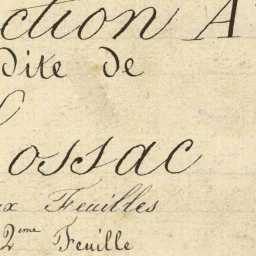 ction A
dite de
ossac
ux Feuilles
2eme Feuille